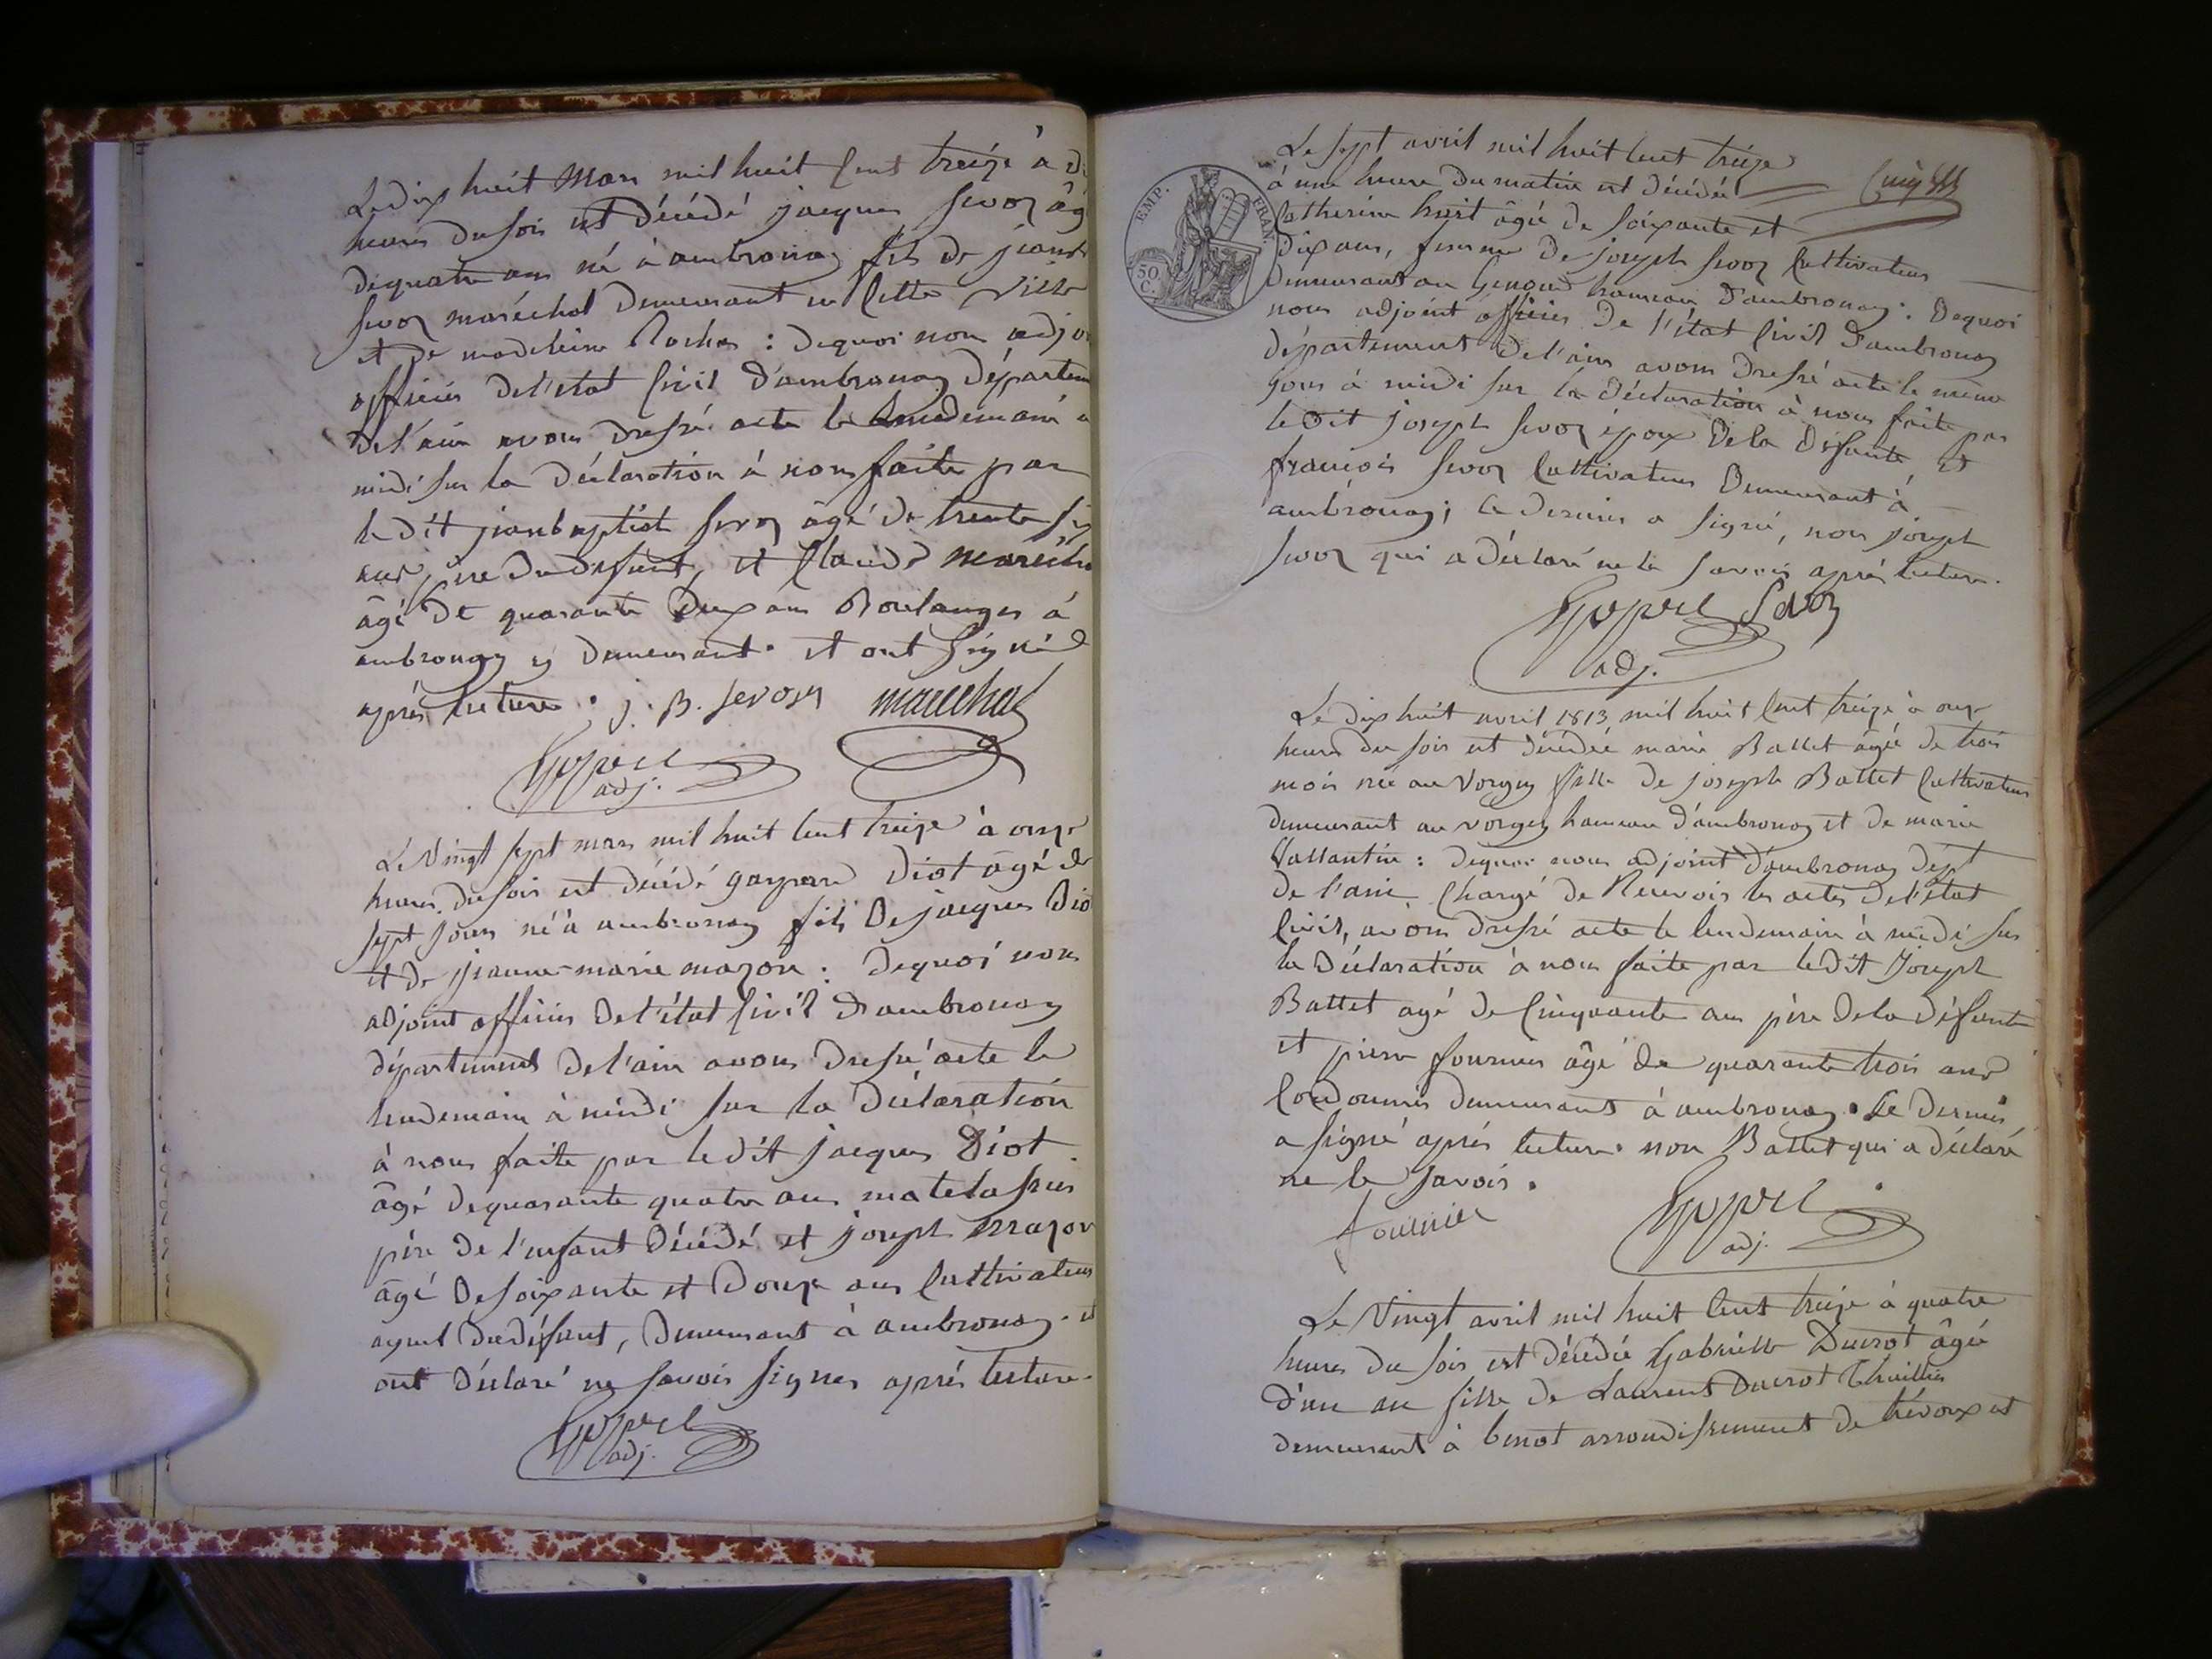 Le dix huit Mars mil huit Cent treize à di
heures du soir est décédé jacques Sevoz âg
de quatre ans né à ambronay fils de jean b
Sevoz maréchal demeurant en Cette Ville
et de madeleine Rocher : dequoi nous adjo
officier de l'état Civil d'ambronay départem
de l'ain avons dressé acte le lendemain à
midi sur la déclaration à nous faite par
le dit jean baptist Sevoz âgé de trente six
ans, père du défunt, et Claude Marécha
âgé de quarante deux ans Boulanger à
ambronay y demeurant. et ont signé
après lecture. j. B. Sevoz marechal
adj.
Le Vingt sept mars mil huit Cent treize à onze
heures du soir est décédé gaspard Diot âgé de
sept jours né à ambronay fils de jacques Dio
et de jeanne-marie mazon : dequoi nous
adjoint officier de l'état Civil d'ambronay
département de l'ain avons dressé acte le
lendemain à midi sur la déclaration
à nous faite par le dit jacques Diot
âgé de quarante quatre ans matelassier
père de l'enfant décédé et joseph mazon
âgé de soixante et douze ans Cultivateur
ayeul du défunt, demeurant à ambronay. et
ont déclaré ne savoir signer après lecture.
adj.
EMP. FRAN.
50 C.
Le sept avril mil huit Cent treize
à une heure du matin est décédée
Catherine huit âgée de soixante et
dix ans, femme de joseph Sevoz Cultivateur
demeurant au Genoud hameau d'ambronay : Dequoi
nous adjoint officier de l'état Civil d'ambronay
département de l'ain avons dressé acte le même
jour à midi sur la déclaration à nous faite par
le dit joseph Sevoz époux de la défunte, et
françois Sevoz Cultivateur demeurant à
ambronay; Ce dernier a signé, non joseph
Sevoz qui a déclaré ne le savoir après lecture.
Sevoz
adj.
Le dix huit avril 1813 mil huit Cent treize à onze
heures du soir est décédée marie Battet âgée de trois
mois née au Vorgey fille de joseph Battet Cultivateur
demeurant au vorgey hameau d'ambronay et de marie
Vallantin : dequoi nous adjoint d'ambronay dépt
de l'ain Chargé de Recevoir les actes de l'état
Civil, avons dressé acte le lendemain à midi sur
la déclaration à nous faite par le dit Joseph
Battet agé de Cinquante ans père de la défunte
et pierre fournier âgé de quarante trois ans
Cordonnier demeurant à ambronay. Ce dernier
a signé après lecture. non Battet qui a déclaré
ne le savoir.
fournier
adj.
Le Vingt avril mil huit Cent treize à quatre
heures du soir est décédée Gabrielle Ducrot âgée
d'un an fille de Laurent Ducrot
demeurant à benot arrondissement de trévoux et